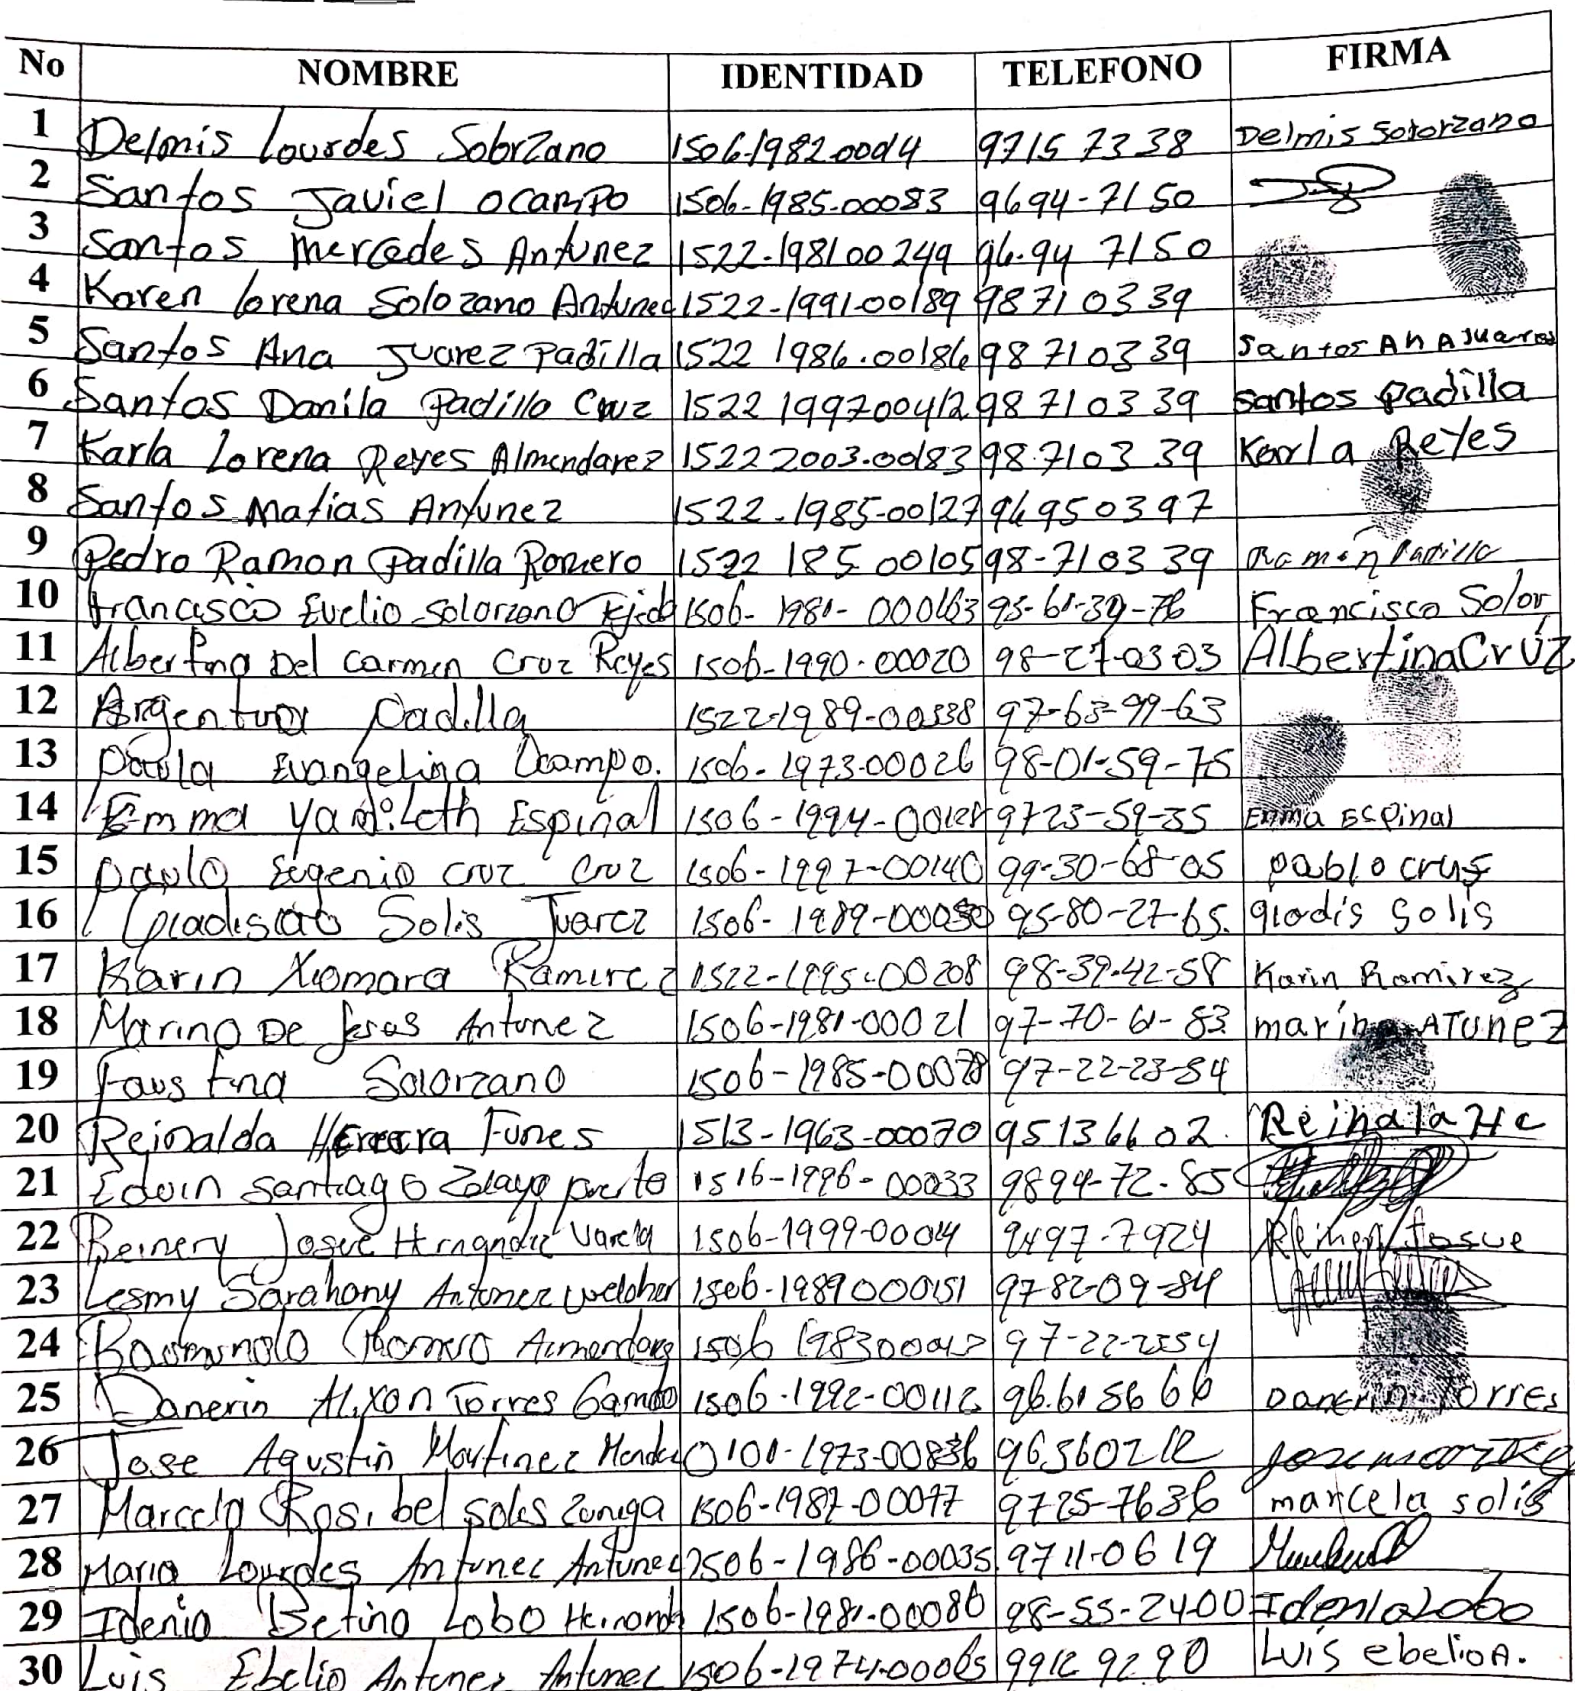 No NOMBRE IDENTIDAD TELEFONO FIRMA
1 Delmis Lourdes Solorzano 1506-1982.00014 9715 7338 Delmis Solorzano
2 Santos Javiel Ocampo 1506-1985-00083 9694-7150
3 Santos Mercedes Antunez 1522-1981 00249 96.94 7150
4 Karen Lorena Solozano Antunec 1522-1991-00189 98710339
5 Santos Ana Juarez Padilla 1522 1986.00186 98 710339 Santos Ana Juares
6 Santos Danila Padilla Cruz 1522 1997 00412 98 710339 santos padilla
7 Karla Lorena Reyes Almendarez 1522 2003.00183 98.7103 39 Karla Reyes
8 Santos Matias Antunez 1522-1985-00127 96950397
9 Pedro Ramon Padilla Romero 1522 185 00105 98-710339 Ramón Padilla
10 Francisco Evelio Solorzano 1506-1981-000163 95-61-39-76 Francisco Solor
11 Albertina Del Carmen Cruz Reyes 1506-1990-00020 98-27-0303 Albertina Crúz
12 Argentina Padilla 1522-1989-00338 97-63-99-63
13 Paula Evangelina Ocampo. 1506-1973-00026 98-01-59-75
14 Emma Yamileth Espinal 1506-1994-00128 9723-59-35 Emma Espinal
15 Pablo Eugenio Cruz Cruz 1506-1997-00140 99-30-68-05 pablo crus
16 Solis Juarez 1506-1989-00030 95-80-27-65. glodis Solis
17 Karin Xiomara Ramirez 1522-1995-00208 98-39-42-58 Karin Ramirez
18 Marino De Jesus Antunez 1506-1981-00021 97-70-61-83 marino ATUNEZ
19 Faustina Solorzano 1506-1985-00078 97-22-23-54
20 Reinalda Herrera Funes 1513-1963-00070 95136602. Reinala He
21 Edwin Santiago Zelaya 1516-1996-00033 9894-72-85
22 Reinery Josue Hrnandez Varela 1506-1999-00014 9497-7924 Reinery Josue
23 Lesmy Sarahony Antunez 1506-1989000151 9782-09-84
24 Romero 1506 97-22-2354
25 Danerin Alixon Torres 1506-1992-00112 96.61 56 66 Danerin Torres
26 Jose Agustin Martinez Mendez 0101-1973-00836 96360212
27 Marcela Rosibel Soles Zuniga 1506-1987-00077 9725-7636 marcela solis
28 Maria Lourdes Antunec Antunec 1506-1986-00035 9711-0619
29 Idenia Betina Lobo 1506-1981-00086 98-55-2400 Idenia Lobo
30 Luis Ebelio Antunez Antunec 1506-1974-00065 9912 9290 Luis ebelio A.